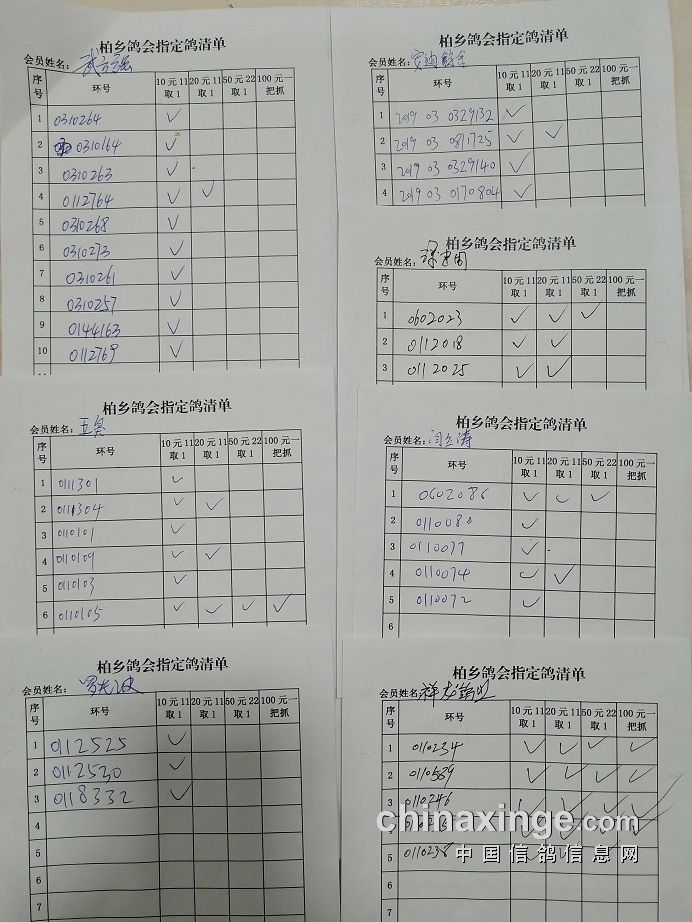 柏乡鸽会指定鸽清单
会员姓名：武立强
序号 环号 10元11取1 20元11取1 50元22取1 100元一把抓
1 0310264 ✓
2 0310164 ✓
3 0310263 ✓
4 0112764 ✓ ✓
5 0310268 ✓
6 0310273 ✓
7 0310261 ✓
8 0310257 ✓
9 0144163 ✓
10 0112769 ✓
柏乡鸽会指定鸽清单
会员姓名：安迪鸽舍
序号 环号 10元11取1 20元11取1 50元22取1 100元一把抓
1 2019 03 0329132 ✓
2 2019 03 0811725 ✓ ✓
3 2019 03 0329140 ✓
4 2019 03 0170804 ✓
柏乡鸽会指定鸽清单
会员姓名：
序号 环号 10元11取1 20元11取1 50元22取1 100元一把抓
1 0602023 ✓ ✓ ✓
2 0112018 ✓ ✓
3 0112025 ✓ ✓
柏乡鸽会指定鸽清单
会员姓名：
序号 环号 10元11取1 20元11取1 50元22取1 100元一把抓
1 0111301 ✓
2 0111304 ✓ ✓
3 0110101 ✓
4 0110109 ✓ ✓
5 0110103 ✓
6 0110105 ✓ ✓ ✓ ✓
柏乡鸽会指定鸽清单
会员姓名：闫立涛
序号 环号 10元11取1 20元11取1 50元22取1 100元一把抓
1 0602086 ✓ ✓ ✓
2 0110080 ✓
3 0110077 ✓
4 0110074 ✓ ✓
5 0110072 ✓
6
柏乡鸽会指定鸽清单
会员姓名：
序号 环号 10元11取1 20元11取1 50元22取1 100元一把抓
1 0112525 ✓
2 0112530 ✓
3 0118332 ✓
4
5
6
7
柏乡鸽会指定鸽清单
会员姓名
序号 环号 10元11取1 20元11取1 50元22取1 100元一把抓
1 0110234 ✓ ✓ ✓ ✓
2 0110589 ✓ ✓ ✓ ✓
3 0110246 ✓ ✓ ✓ ✓
5 0110238 ✓ ✓ ✓ ✓
6
7
chinaxinge.com
中国信鸽信息网